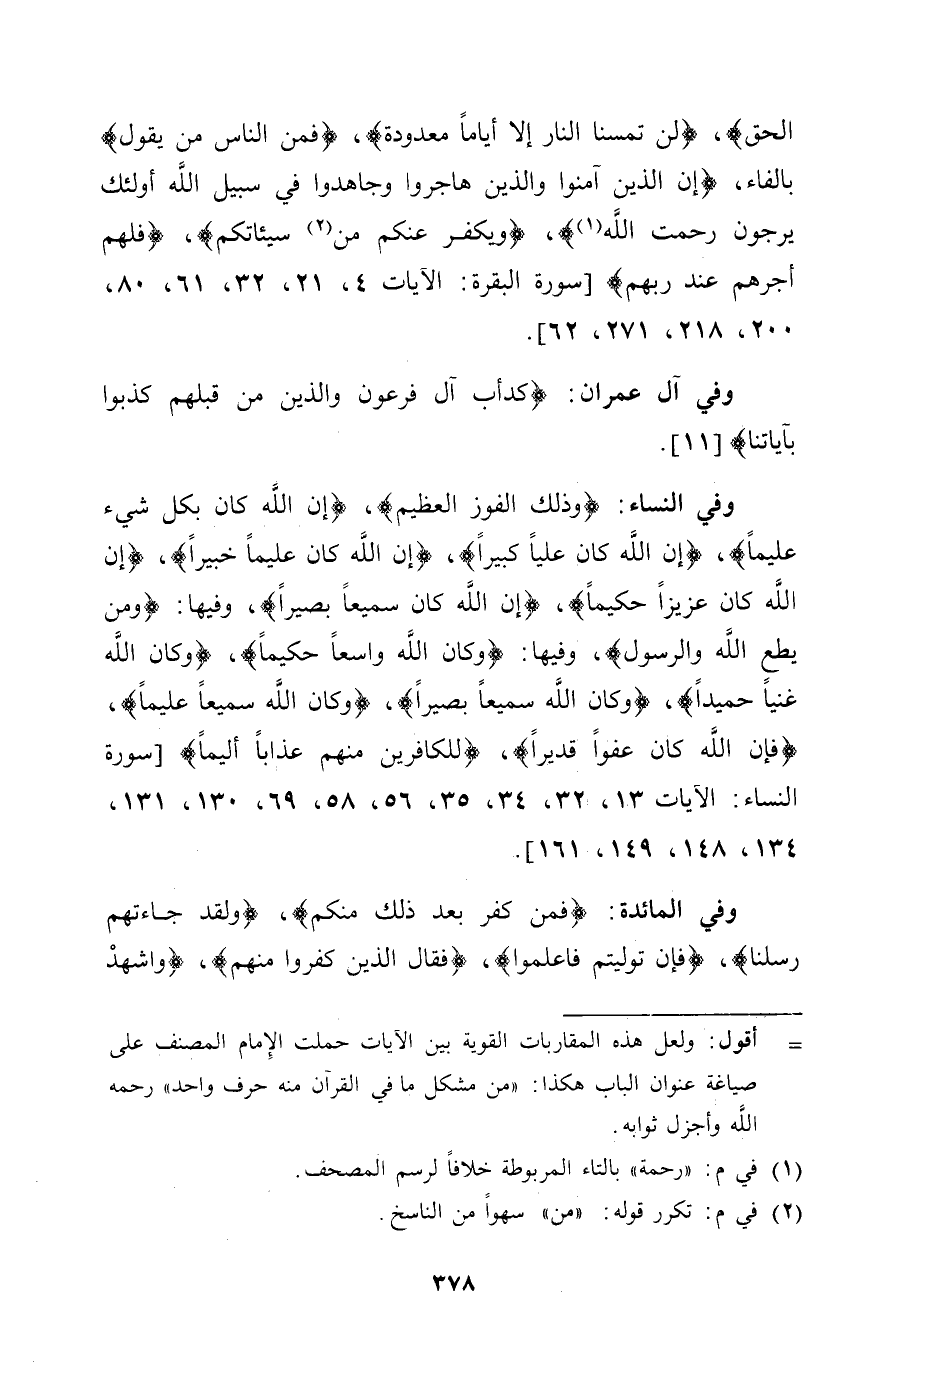 الحق﴾، ﴿لن تمسنا النار إلا أياماً معدودة﴾، ﴿فمن الناس من يقول﴾
بالفاء، ﴿إن الذين آمنوا والذين هاجروا وجاهدوا في سبيل اللَّه أولئك
يرجون رحمت اللَّه(١)﴾، ﴿ويكفـر عنكم من(٢) سيئاتكم﴾، ﴿فلهم
أجرهم عند ربهم﴾ [سورة البقرة: الآيات ٤، ٢١، ٣٢، ٦١، ٨٠،
٢٠٠، ٢١٨، ٢٧١، ٦٢].
وفي آل عمران: ﴿كدأب آل فرعون والذين من قبلهم كذبوا
بآياتنا﴾ [١١].
وفي النساء: ﴿وذلك الفوز العظيم﴾، ﴿إن اللَّه كان بكل شيء
عليماً﴾، ﴿إن اللَّه كان علياً كبيراً﴾، ﴿إن اللَّه كان عليماً خبيراً﴾، ﴿إن
اللَّه كان عزيزاً حكيماً﴾، ﴿إن اللَّه كان سميعاً بصيراً﴾، وفيها: ﴿ومن
يطع اللَّه والرسول﴾، وفيها: ﴿وكان اللَّه واسعاً حكيماً﴾، ﴿وكان اللَّه
غنياً حميداً﴾، ﴿وكان اللَّه سميعاً بصيراً﴾، ﴿وكان اللَّه سميعاً عليماً﴾،
﴿فإن اللَّه كان عفواً قديراً﴾، ﴿للكافرين منهم عذاباً أليماً﴾ [سورة
النساء: الآيات ١٣، ٣٢، ٣٤، ٣٥، ٥٦، ٥٨، ٦٩، ١٣٠، ١٣١،
١٣٤، ١٤٨، ١٤٩، ١٦١].
وفي المائدة: ﴿فمن كفر بعد ذلك منكم﴾، ﴿ولقد جـاءتهم
رسلنا﴾، ﴿فإن توليتم فاعلموا﴾، ﴿فقال الذين كفروا منهم﴾، ﴿واشهدْ
= أقول: ولعل هذه المقاربات القوية بين الآيات حملت الإمام المصنف على
صياغة عنوان الباب هكذا: «من مشكل ما في القرآن منه حرف واحد» رحمه
اللَّه وأجزل ثوابه.
(١) في م: «رحمة» بالتاء المربوطة خلافاً لرسم المصحف.
(٢) في م: تكرر قوله: «من» سهواً من الناسخ.
٣٧٨